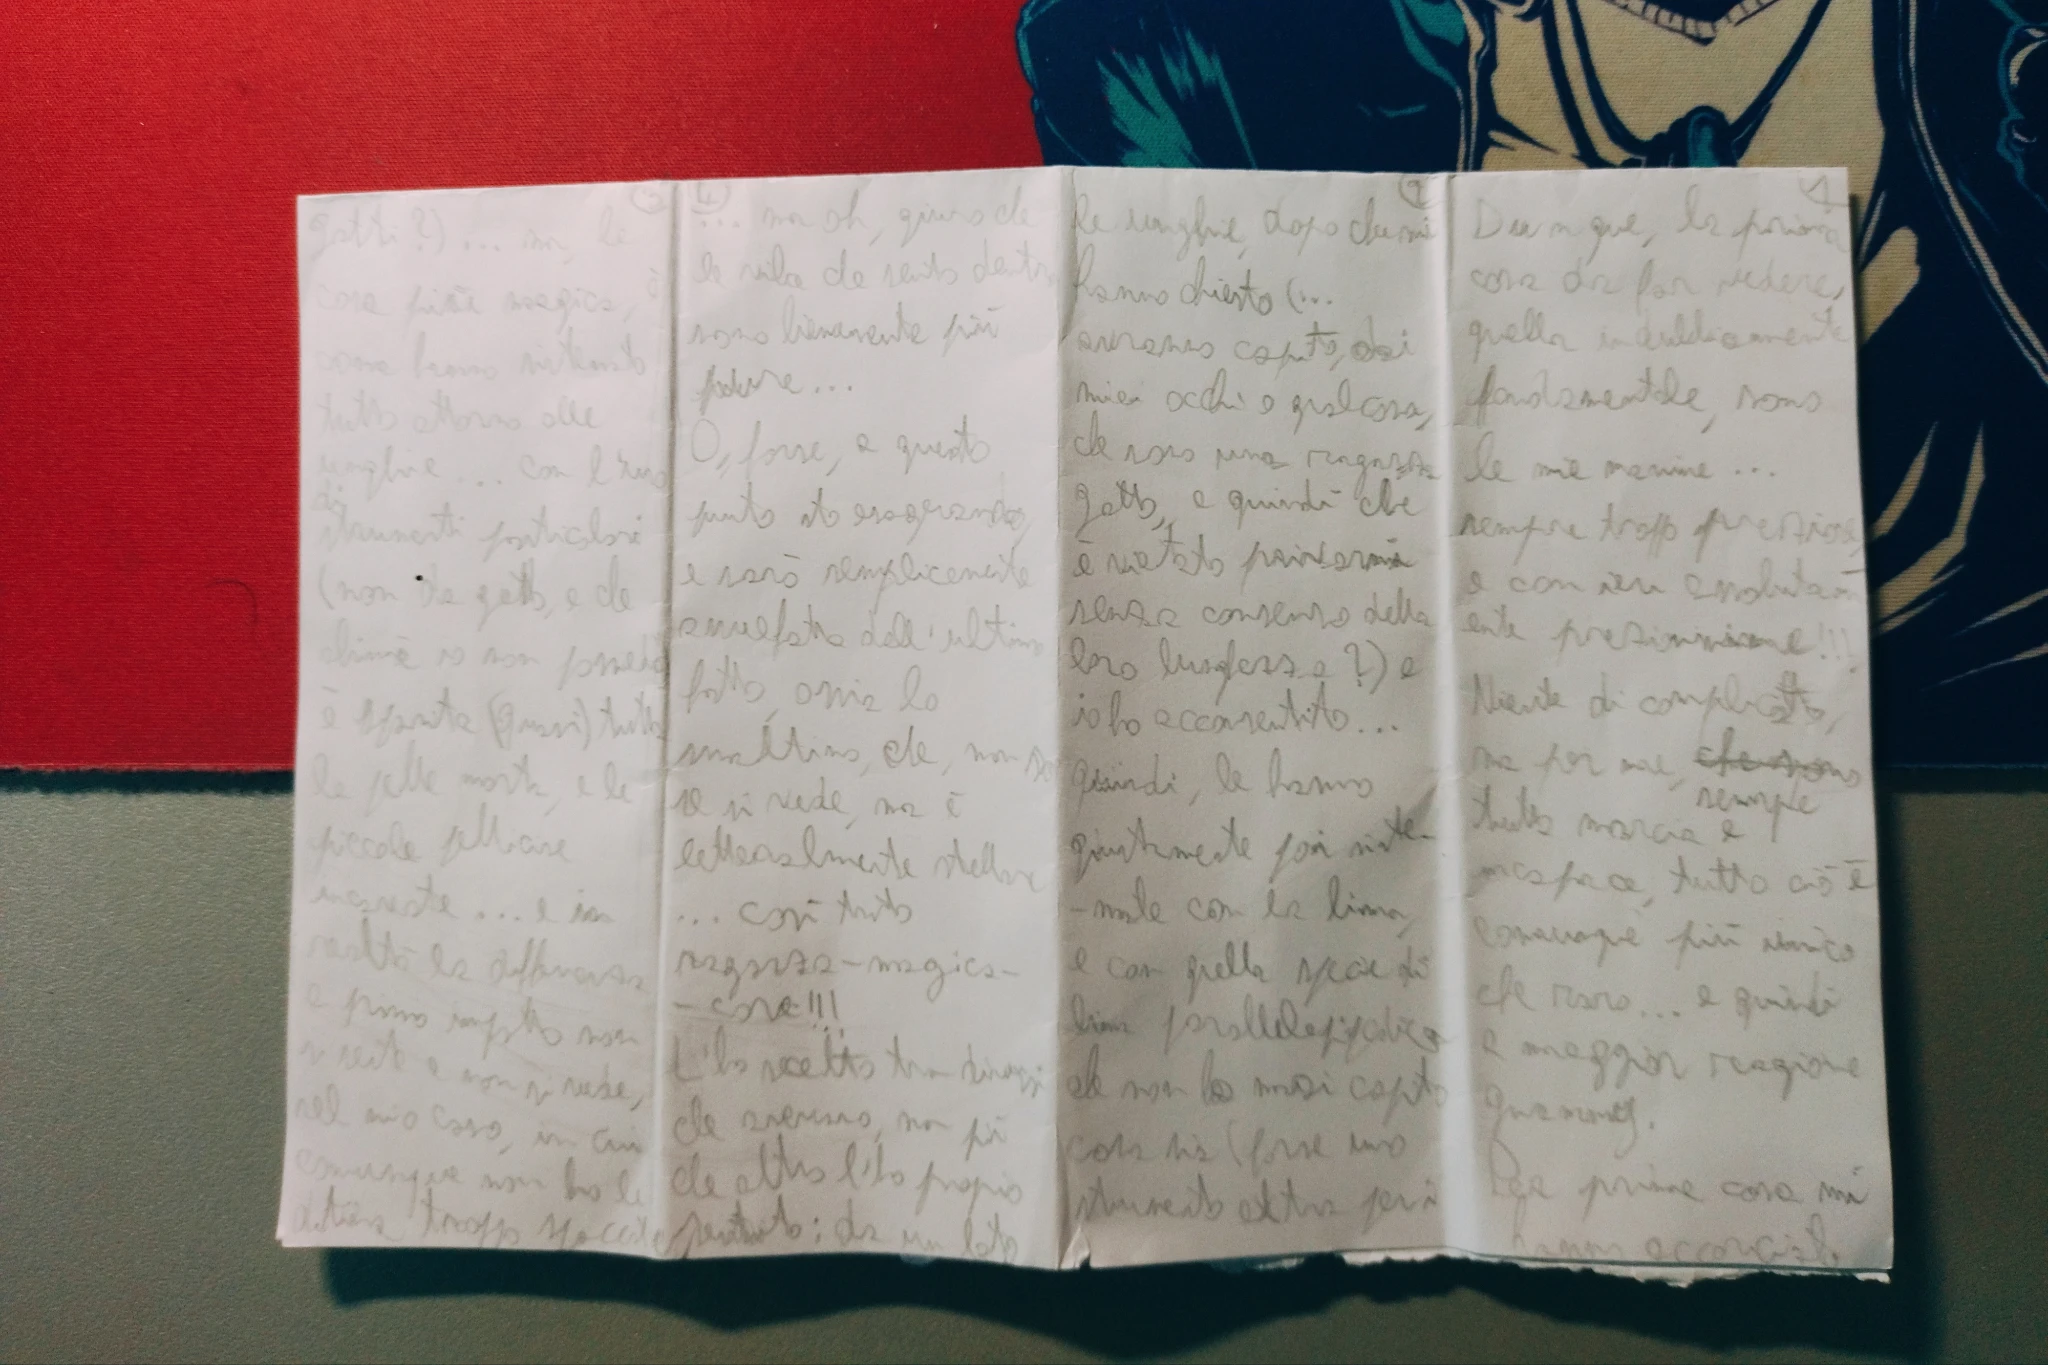 1
Dunque, la prima
cosa da far vedere,
quella indubbiamente
fondamentale, sono
le mie manine ...
sempre tropp preziose,
e con ieri assolutam
ente preziosissime!!!
Niente di complicato,
ma per me, che sono
sempre
tutta marcia e
incapace, tutto ciò è
comunque più unico
che raro... e quindi
a maggior ragione
Per prime cosa mi
hanno accorciato
2
le unghie, dopo che mi
hanno chiesto (...
avranno capito, dai
miei occhi e qualcosa,
che sono una ragazza
gatto, e quindi che
è vietato privarmi
senza consenso della
loro lunghezza?) e
io ho acconsentito...
quindi, le hanno
giustamente poi siste-
-mate con la lima,
e con quella specie di
lima parallelepipedica
che non ho mai capito
cosa sia (forse uno
strumento extra però
3
gatti?) ... ma, la
cosa più magica, è
come hanno sistemato
tutto attorno alle
unghie ... con l'uso
di
strumenti particolari
(non da gatto, e che
ahimè io non possiedo
è sparita (quasi) tutta
la pelle morta, e le
piccole pellicine
incarnite ... e in
realtà la differenza
a primo impatto non
si sente e non si vede,
nel mio caso, in cui
comunque non ho le
ditina tropp spaccate
4
... ma oh, giuro che
le vibe che sento dentro
sono lievemente più
pure ...
O, forse, a questo
punto sto esagerando,
e sarò semplicemente
assuefatta dall'ultimo
fatto, ossia lo
smaltino, che, non so
se si vede, ma è
letteralmente stellare
... così tanto
ragazza-magica-
-core!!!
L'ho scelto tra diversi
che avevano, ma più
che altro l'ho proprio
sentito: da un lato